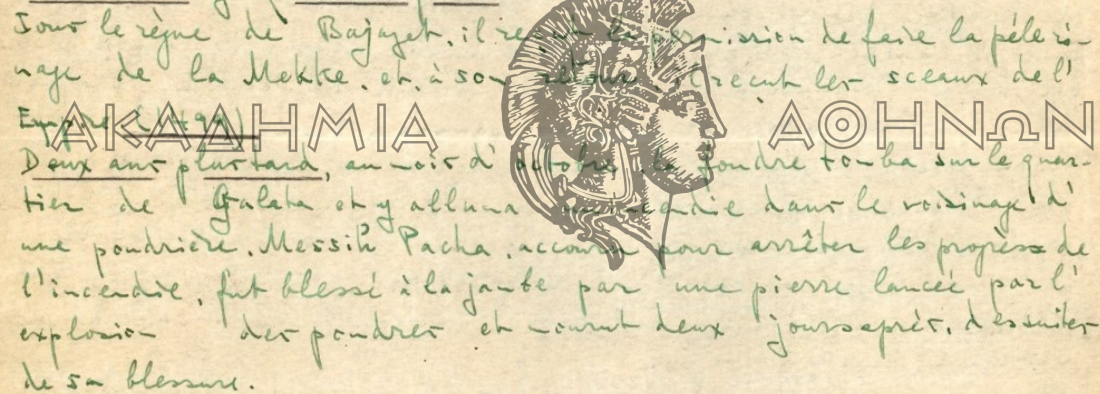 Sous le règne de Bajazet, il reçut la permission de faire la péleri-
nage de la Mekke, et, à son retour il reçut les sceaux de l'
Empire (1499)
ΑΚΑΔΗΜΙΑ ΑΘΗΝΩΝ
Deux ans plus tard, au mois d'octobre, la foudre tomba sur le quar-
tier de Galata et y alluma un incendie dans le voisinage d'
une poudrière. Messih Pacha, accouru pour arrêter les progrès de
l'incendie, fut blessé à la jambe par une pierre lancée par l'
explosion des poudres et mourut deux jours après, des suites
de sa blessure.